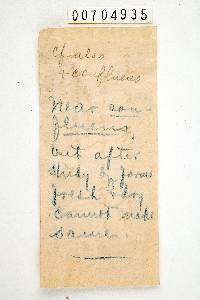 00704935
cf. also
+ confluens
Near con-
fluens,
but after
study of forms
fresh & dry
cannot make
same.